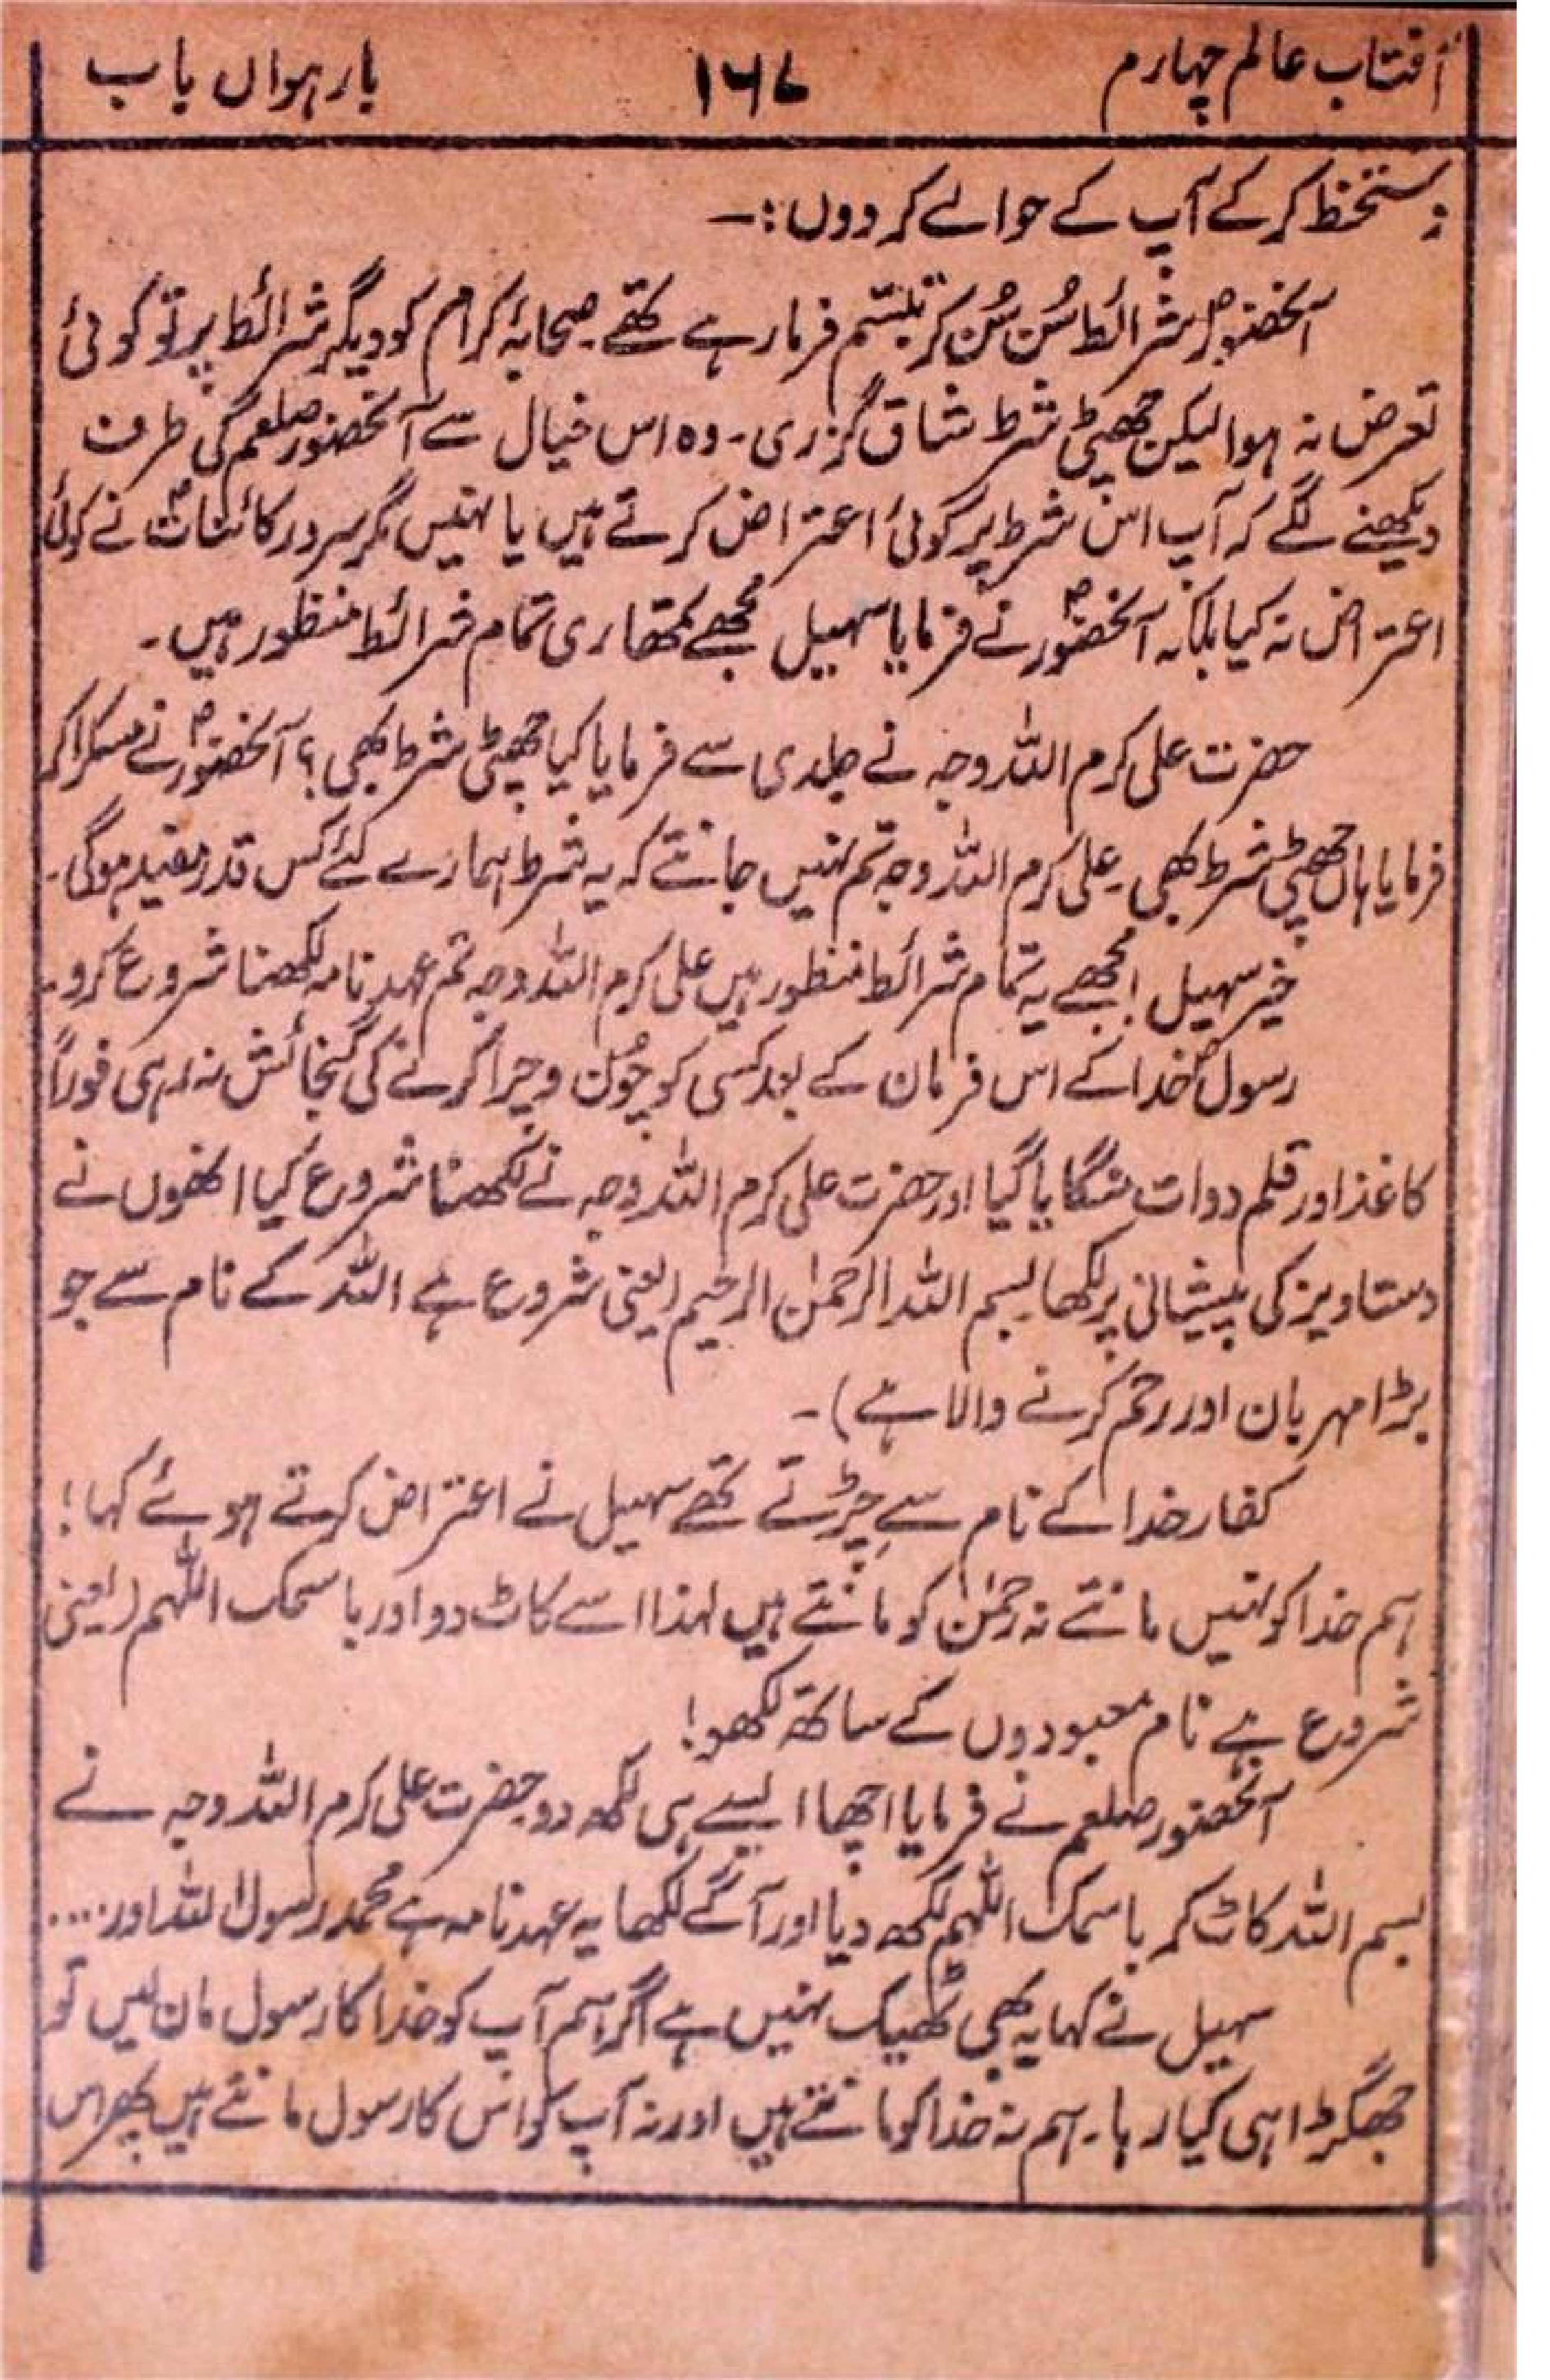 آفتاب عالم چہارم ۱۶۷ بارہواں باب
دستخط کر کے آپ کے حوالے کر دوں :۔
آنحضورؐ شرائط سُن سُن کر تبسّم فرما رہے تھے۔ صحابۂ کرام کو دیگر شرائط پر تو کوئی
تعرض نہ ہوا لیکن چھٹی شرط شاق گزری۔ وہ اس خیال سے آنحضور صلعم کی طرف
دیکھنے لگے کہ آپ اس شرط پر کوئی اعتراض کرتے ہیں یا نہیں مگر سرور کائناتؐ نے کوئی
اعتراض نہ کیا بلکہ آنحضورؐ نے فرمایا سہیل مجھے تمھاری تمام شرائط منظور ہیں۔
حضرت علی کرم اللہ وجہ نے جلدی سے فرمایا کیا چھٹی شرط بھی؟ آنحضورؐ نے مسکرا کر
فرمایا ہاں چھٹی شرط بھی۔ علی کرم اللہ وجہ تم نہیں جانتے کہ یہ شرط ہمارے لئے کس قدر مفید ہوگی۔
خیر سہیل! مجھے یہ تمام شرائط منظور ہیں علی کرم اللہ وجہ تم عہد نامہ لکھنا شروع کرو۔
رسولؐ خدا کے اس فرمان کے بعد کسی کو چُون و چرا کرنے کی گنجائش نہ رہی فوراً
کاغذ اور قلم دوات منگایا گیا اور حضرت علی کرم اللہ وجہ نے لکھنا شروع کیا انھوں نے
دستاویز کی پیشانی پر لکھا بسم اللہ الرحمٰن الرحیم (یعنی شروع ہے اللہ کے نام سے جو
بڑا مہربان اور رحم کرنے والا ہے)۔
کفار خدا کے نام سے چِڑتے تھے سہیل نے اعتراض کرتے ہوئے کہا!
ہم خدا کو نہیں مانتے نہ رحمٰن کو مانتے ہیں لہذا اسے کاٹ دو اور باسمک اللہم (یعنی
شروع ہے نام معبودوں کے ساتھ لکھو!
آنحضور صلعم نے فرمایا اچھا ایسے ہی لکھ دو حضرت علی کرم اللہ وجہ نے
بسم اللہ کاٹ کر باسمک اللہم لکھ دیا اور آگے لکھا یہ عہد نامہ ہے محمد رسول اللہ اور....
سہیل نے کہا یہ بھی ٹھیک نہیں ہے اگر ہم آپ کو خدا کا رسول مان لیں تو
جھگڑا ہی کیا رہا۔ ہم نہ خدا کو مانتے ہیں اور نہ آپ کو اس کا رسول مانتے ہیں پھر اس